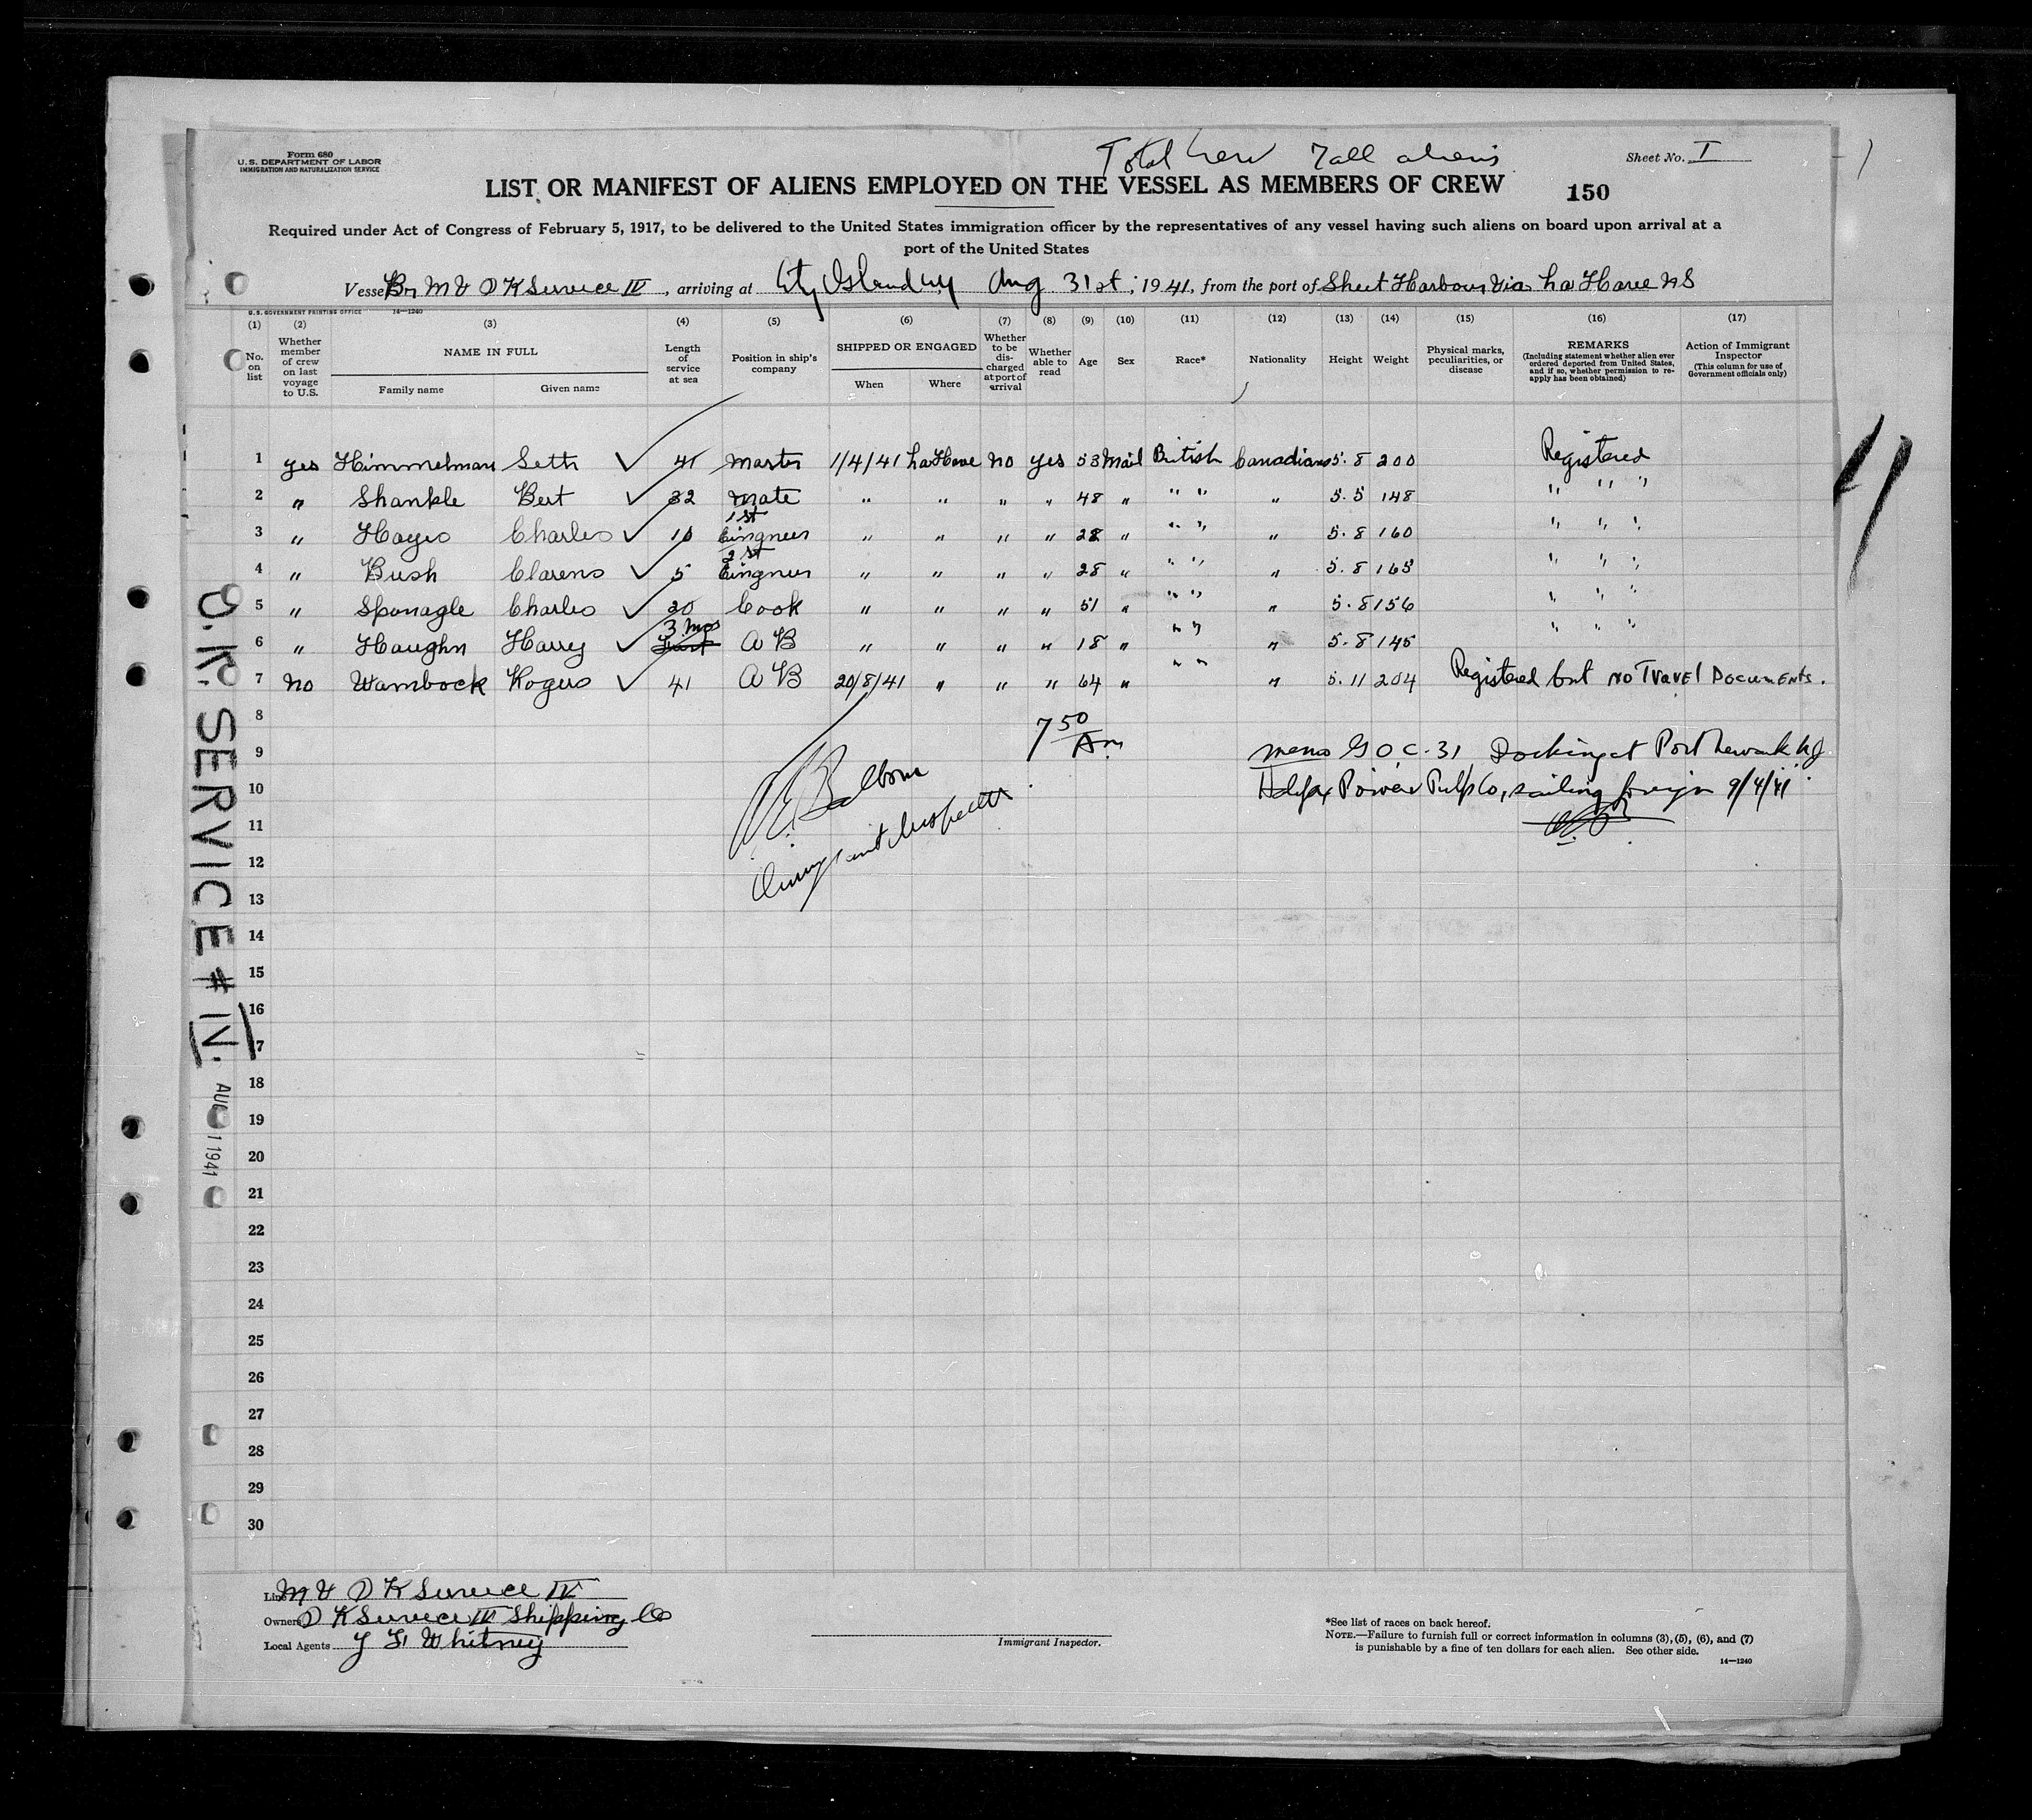 Form 680
U.S. DEPARTMENT OF LABOR
IMMIGRATION AND NATURALIZATION SERVICE
Total Crew 7 all aliens
Sheet No. I
LIST OR MANIFEST OF ALIENS EMPLOYED ON THE VESSEL AS MEMBERS OF CREW
150
Required under Act of Congress of February 5, 1917, to be delivered to the United States immigration officer by the representatives of any vessel having such aliens on board upon arrival at a
port of the United States
Vessel Br M V O K Service IV, arriving at City Island NY Aug 31st, 1941, from the port of Sheet Harbour Via La Have NS
U.S. GOVERNMENT PRINTING OFFICE 14—1240
(1) No. on list
(2) Whether member of crew on last voyage to U.S.
(3) NAME IN FULL Family name Given name
(4) Length of service at sea
(5) Position in ship's company
(6) SHIPPED OR ENGAGED When Where
(7) Whether to be discharged at port of arrival
(8) Whether able to read
(9) Age
(10) Sex
(11) Race*
(12) Nationality
(13) Height
(14) Weight
(15) Physical marks, peculiarities, or disease
(16) REMARKS (Including statement whether alien ever ordered deported from United States, and if so, whether permission to reapply has been obtained)
(17) Action of Immigrant Inspector (This column for use of Government officials only)
1 yes Himmelman Seth ✓ 41 Master 1/4/41 La Have no yes 53 Mail British Canadians 5.8 200 Registered
2 " Shankle Bert ✓ 32 Mate " " " " 48 " " " " 5.5 148 " " "
3 " Hayes Charles ✓ 10 1st Eingneer " " " " 28 " " " " 5.8 160 " " "
4 " Bush Clarens ✓ 5 2st Eingneer " " " " 28 " " " " 5.8 165 " " "
5 " Sponagle Charles ✓ 20 Cook " " " " 51 " " " " 5.8 156 " " "
6 " Haughn Harry ✓ 3 mos First A B " " " " 18 " " " " 5.8 145 " " "
7 no Wambock Rogers ✓ 41 A B 20/8/41 " " " 64 " " " " 5.11 204 Registered but NO Travel Documents.
8
9
10
11
12
13
14
15
16
17
18
19
20
21
22
23
24
25
26
27
28
29
30
7 50 Am
memo G O C-31 Docking at Port Newark NJ
Halifax Power Pulp Co, sailing foreign 9/4/41
Immigrant Inspector
O.K. SERVICE # IV.
AUG 1 1941
Line M V O K Service IV
Owners O K Service IV Shipping Co
Local Agents J F Whitney
Immigrant Inspector.
*See list of races on back hereof.
NOTE.—Failure to furnish full or correct information in columns (3), (5), (6), and (7)
is punishable by a fine of ten dollars for each alien. See other side.
14—1240